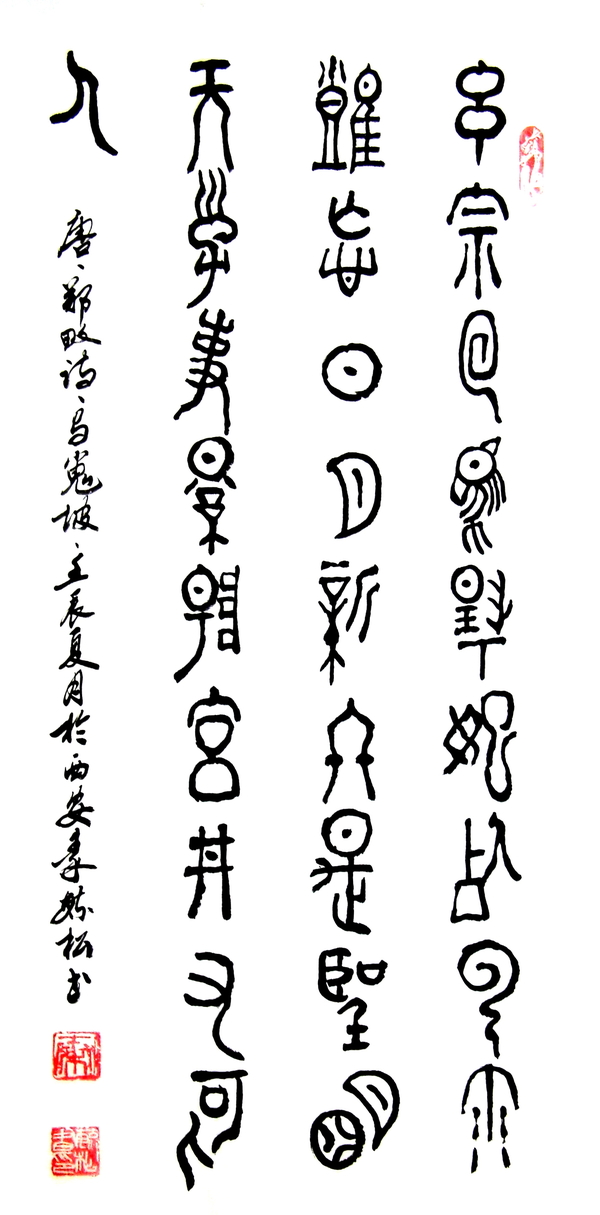 玄宗回馬楊妃死雲雨
雖忘日月新終是聖明
天子事景陽宮井又何
人
唐、郑畋诗、马嵬坡、壬辰夏月於西安李松书